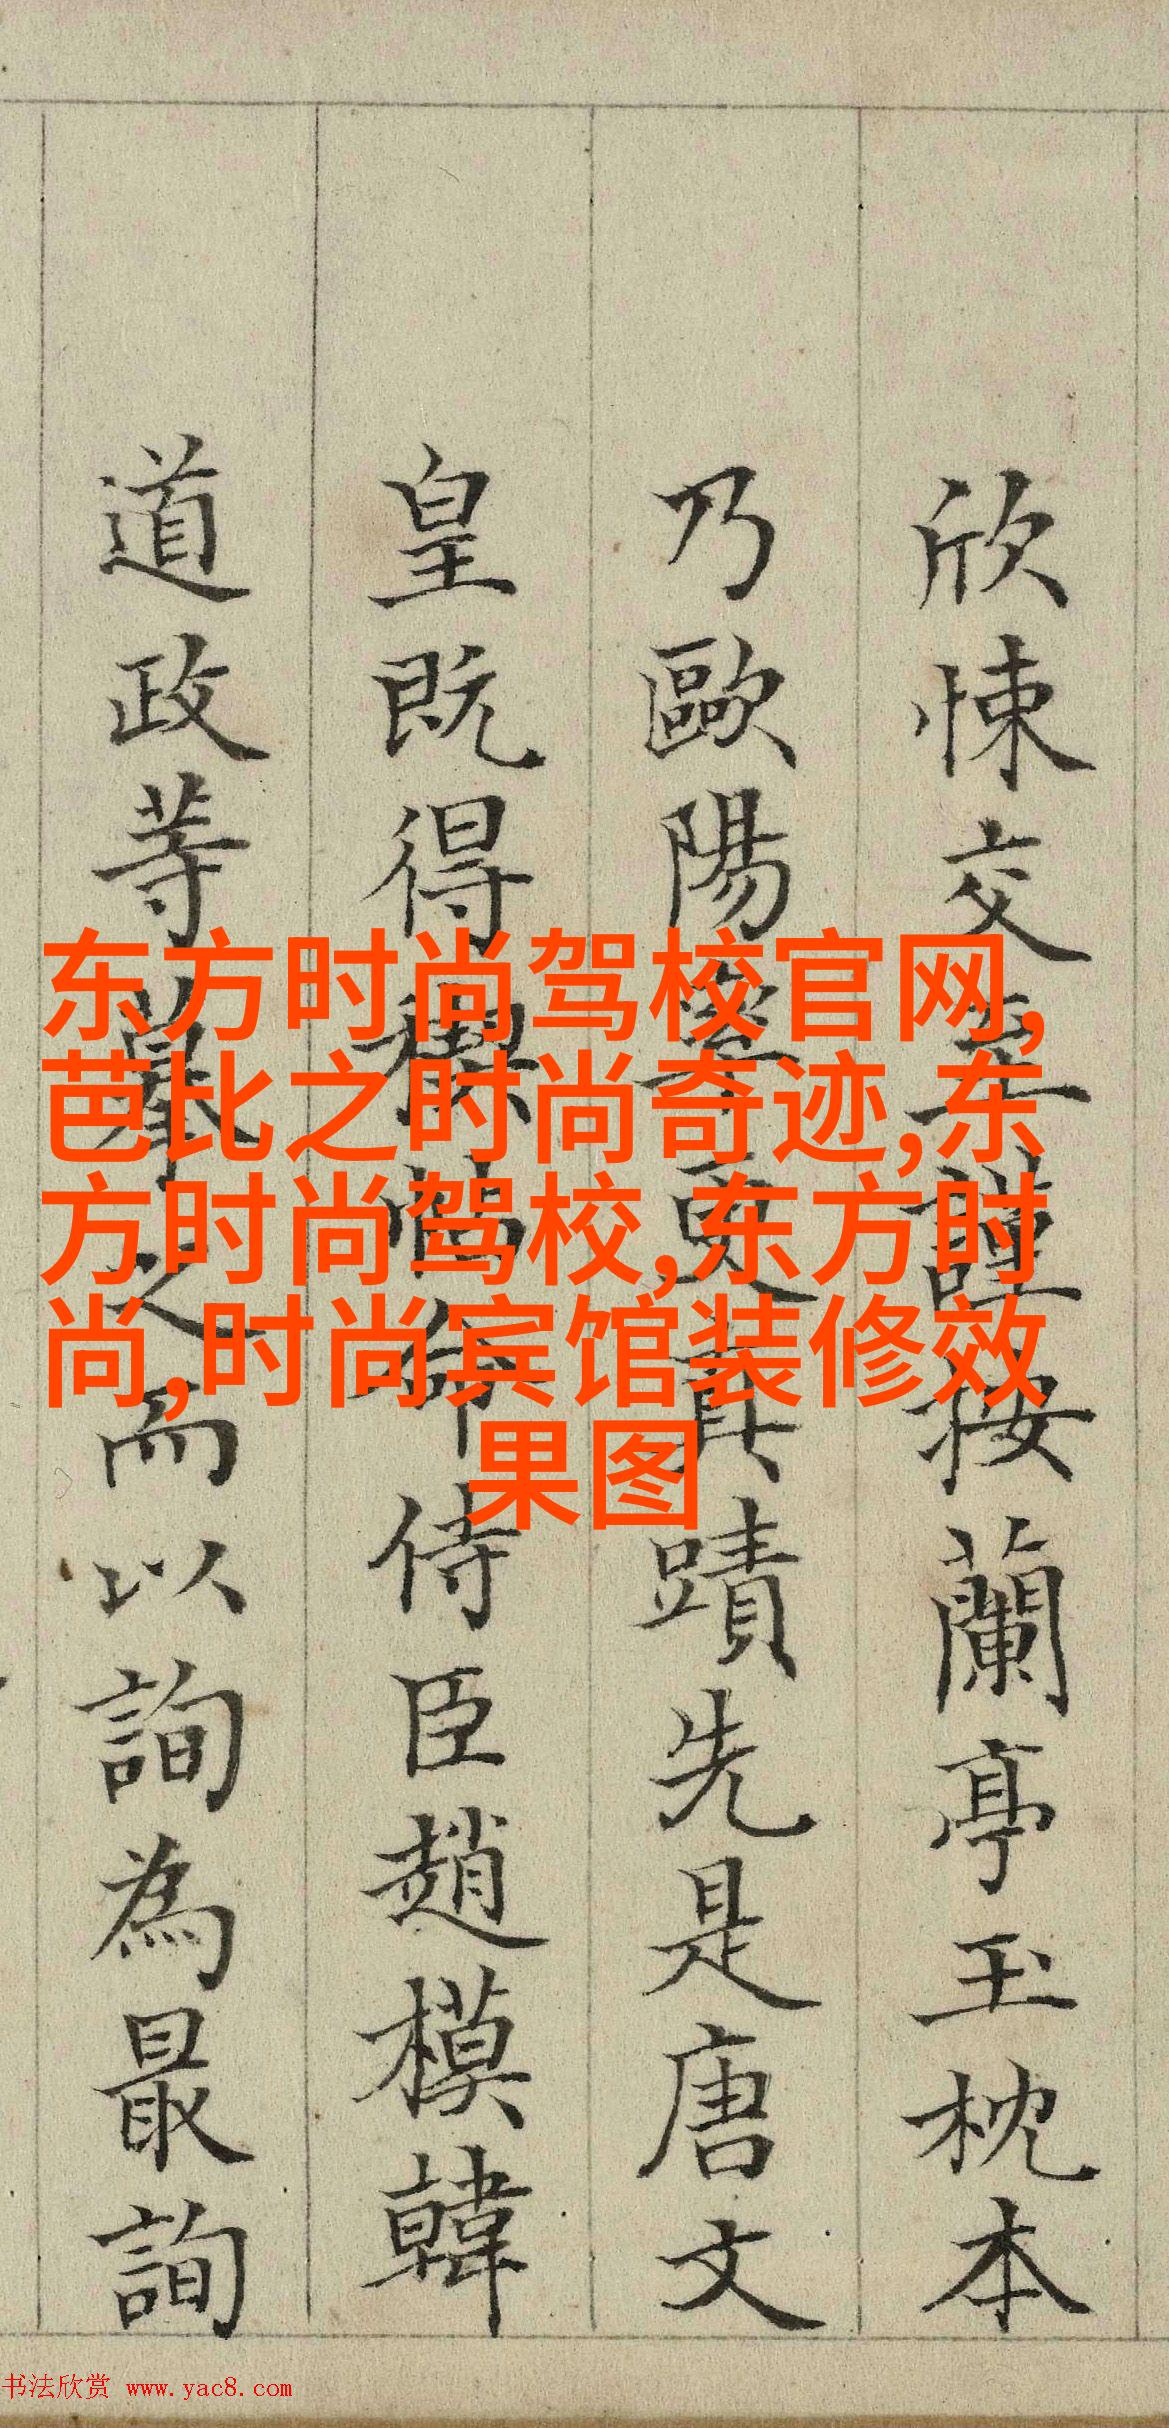 欣悚交至謹按蘭亭玉枕本
乃歐陽率更真蹟先是唐文
皇既得稧帖命侍臣趙模韓
道政等摹之而以詢為最詢
东方时尚驾校官网,
芭比之时尚奇迹,东
方时尚驾校,东方时
尚,时尚宾馆装修效
果图
书法欣赏 www.yac8.com